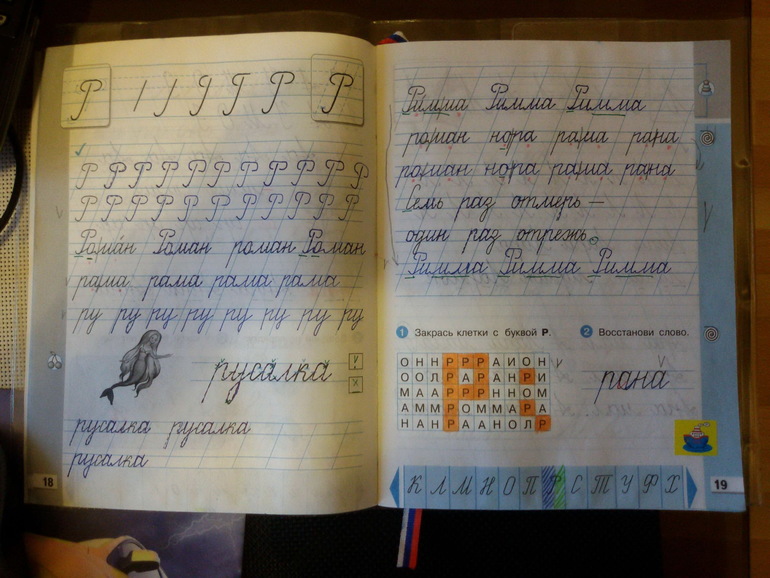 Р Р Р
Р Р Р Р Р Р Р Р Р Р Р
Р Р Р Р Р Р Р Р Р Р Р
Роман Роман роман Роман
рама рама рама рама
ру ру ру ру ру ру ру ру
русалка
русалка русалка
русалка
18
Римма Римма Римма
роман нора рама рана
роман нора рама рана
Семь раз отмерь —
один раз отрежь.
Римма Римма Римма
1 Закрась клетки с буквой Р.
ОННРРРАИОН
ООЛРАРАНРИ
МААРРРННОМ
АММРОММАРА
НАНРААНОЛР
2 Восстанови слово.
рана
К Л М Н О П Р С Т У Ф Х
19